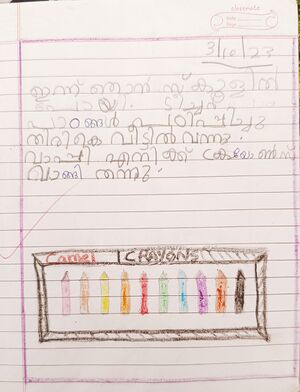 classmate
Date
Page
3/10/23
ഇന്ന് ഞാൻ സ്കൂളിൽ
പോയി. ടീച്ചർ
പാഠങ്ങൾ പഠിപ്പിച്ചു
തിരികെ വീട്ടിൽ വന്നു.
വാപ്പി എനിക്ക് ക്രയോൺസ്
വാങ്ങി തന്നു.
Camel CRAYONS